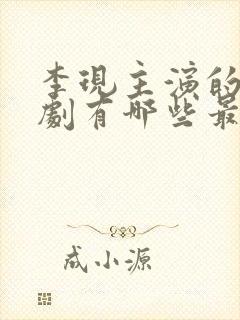 李現主演的
劇有哪些最
成小源